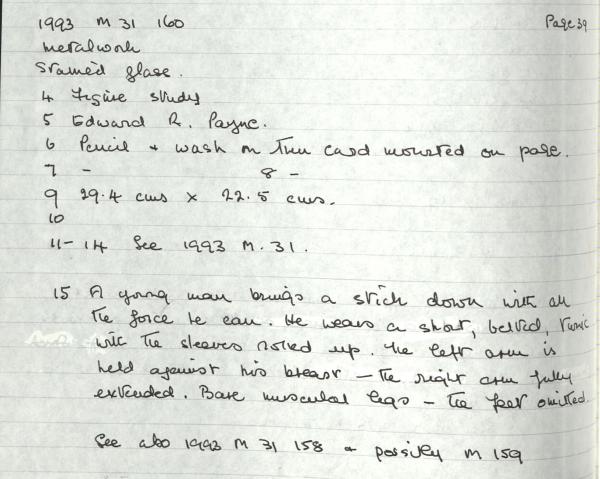 1993 M 31 160 Page 39
Metalwork
Stained glass.
4 Figure study
5 Edward R. Payne.
6 Pencil + wash on thin card mounted on page.
7 - 8 -
9 29.4 cms x 22.5 cms.
10
11-14 See 1993 M.31.
15 A young man brings a stick down with all
the force he can. He wears a short, belted, tunic
with the sleeves rolled up. The left arm is
held against his breast - the right arm fully
extended. Bare muscular legs - the feet omitted.
See also 1993 M 31 158 + possibly M 159